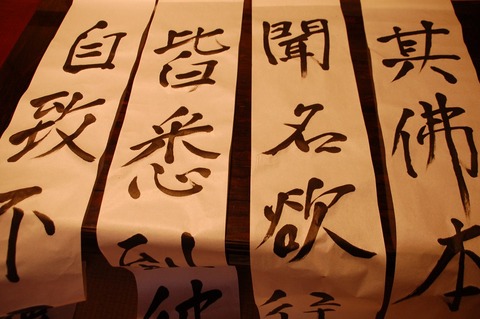 其佛本
聞名欲
皆悉到
自致不